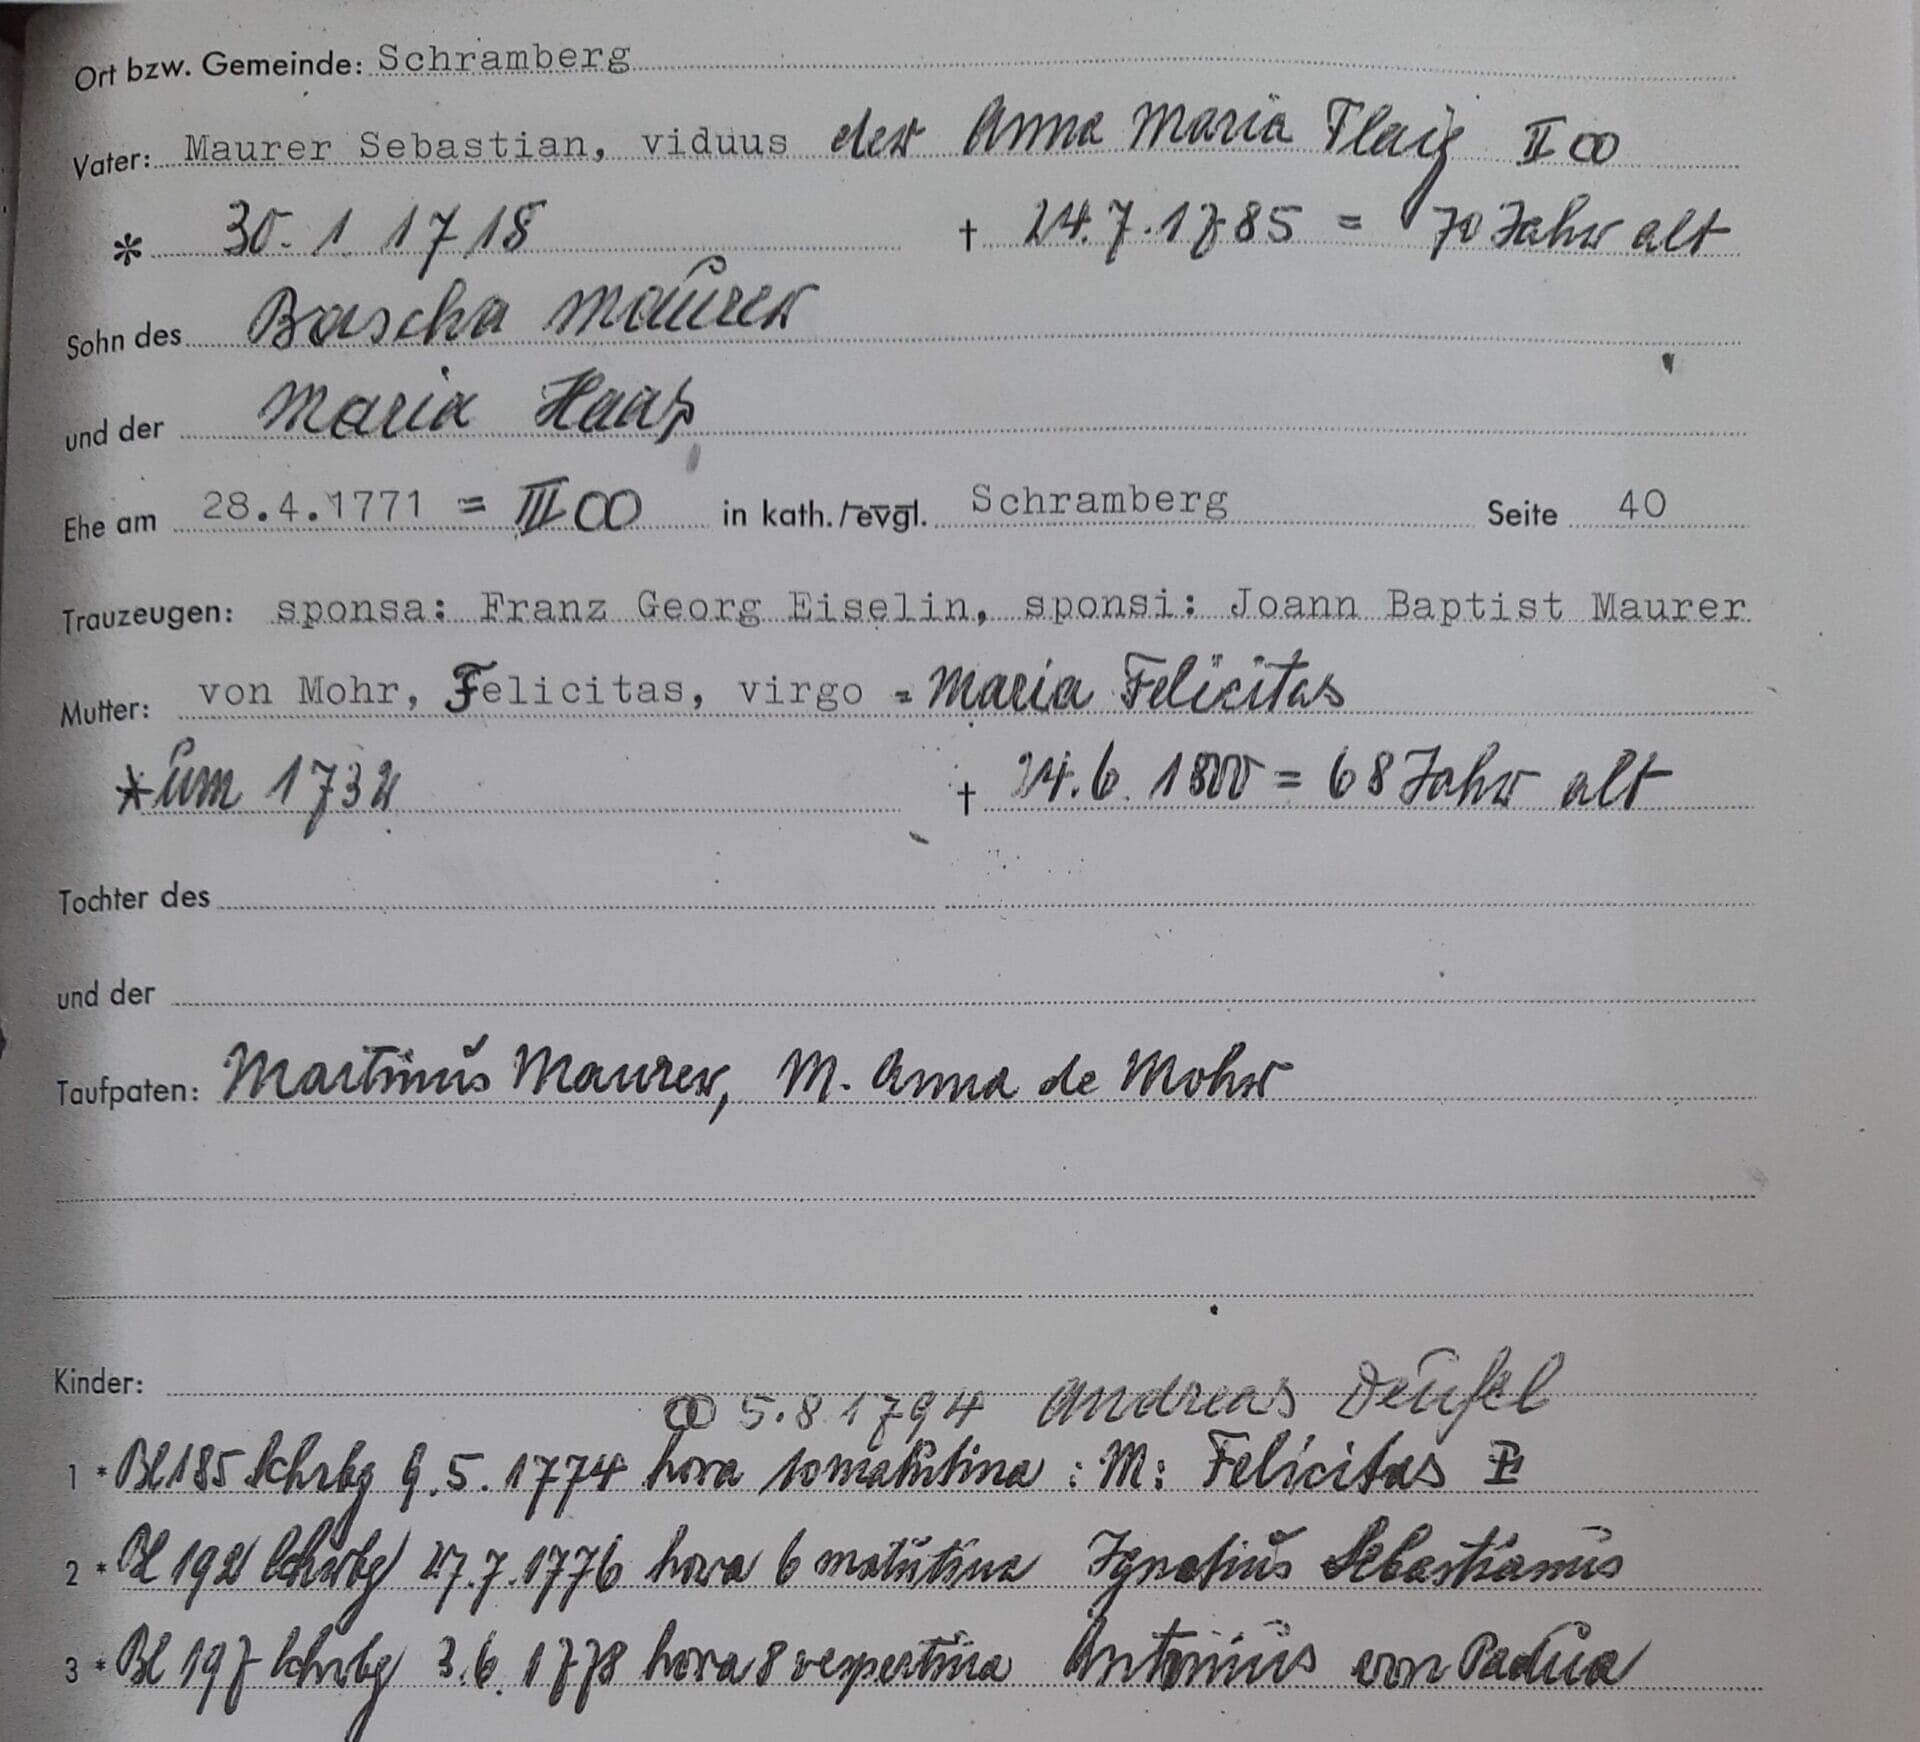 Ort bzw. Gemeinde: Schramberg
Vater: Maurer Sebastian, viduus der Anna Maria Flaig II ∞
* 30. 1 1718 † 24.7.1785 = 70 Jahr alt
Sohn des Bascha Maurer
und der Maria Haas
Ehe am 28.4.1771 = III ∞ in kath./evgl. Schramberg Seite 40
Trauzeugen: sponsa: Franz Georg Eiselin, sponsi: Joann Baptist Maurer
Mutter: von Mohr, Felicitas, virgo = Maria Felicitas
* um 1732 † 24.6. 1800 = 68 Jahr alt
Tochter des
und der
Taufpaten: Martinus Maurer, M. Anna de Mohr
Kinder:
∞ 5.8 1794 Andreas Deufel
1 * Bl 185 Schrbg 9.5.1774 hora 10 matutina : M: Felicitas
2 * Bl 192 Schrbg 27.7.1776 hora 6 matutina Ignatius Sebastianus
3 * Bl 197 Schrbg 3.6.1778 hora 8 vespertina Antonius von Padua